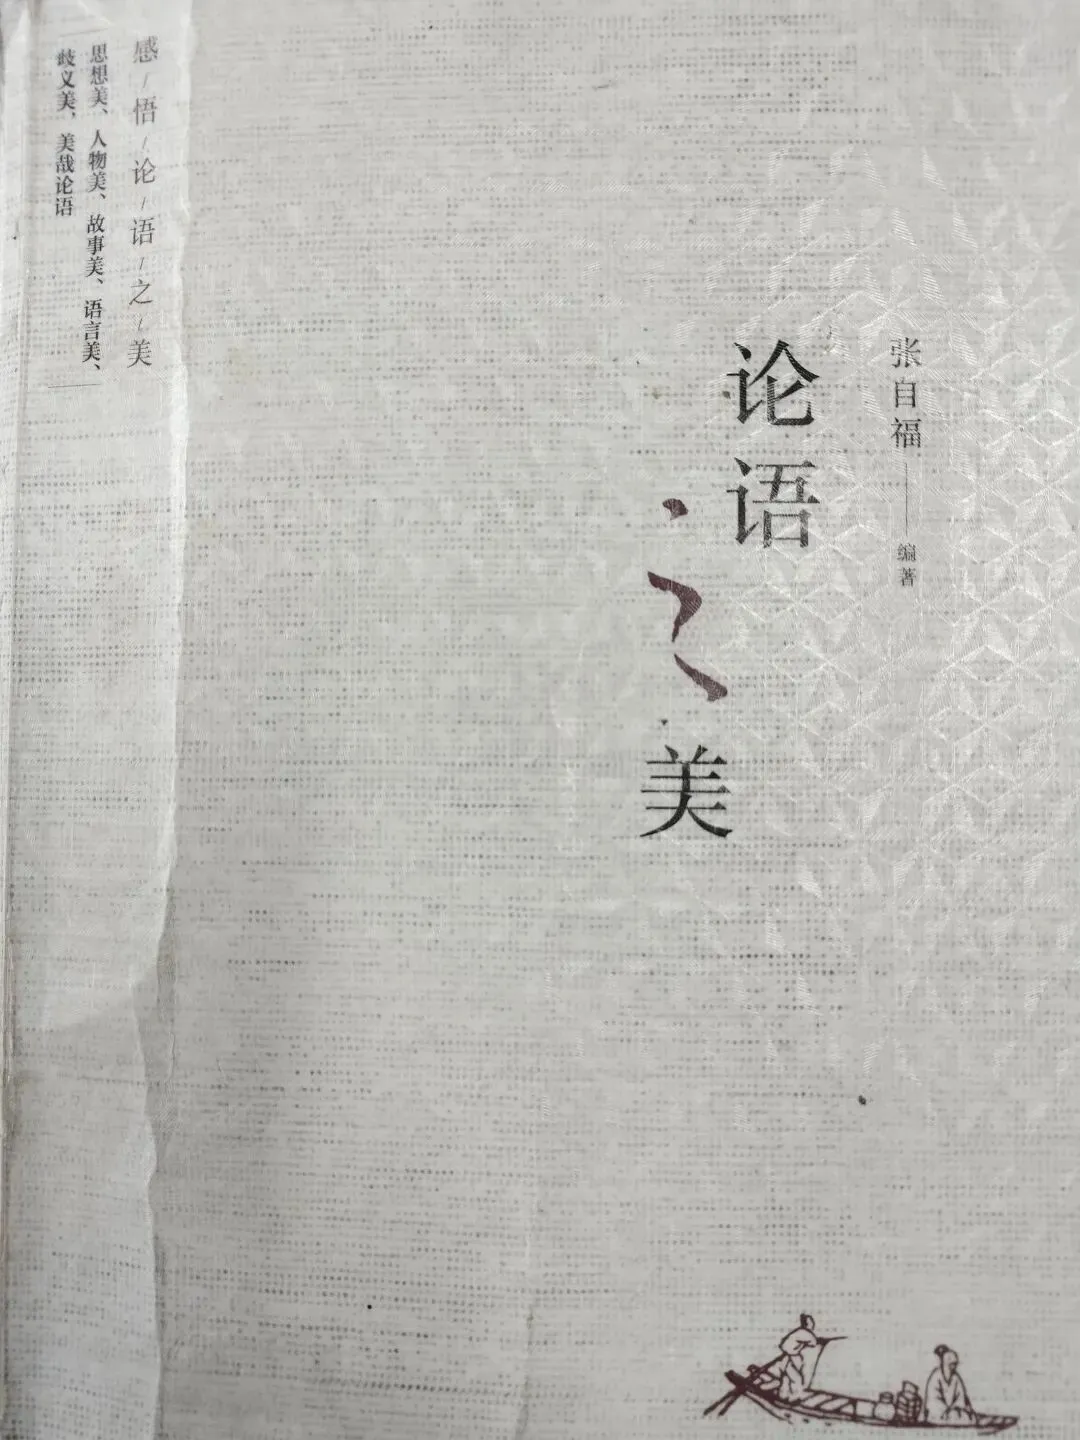 张自福
编著
论语
之
美
感/悟/论/语/之/美
思想美、人物美、故事美、语言美、
歧义美，美哉论语